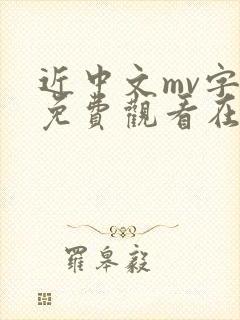 近中文mv字
免費觀看在
羅皋毅